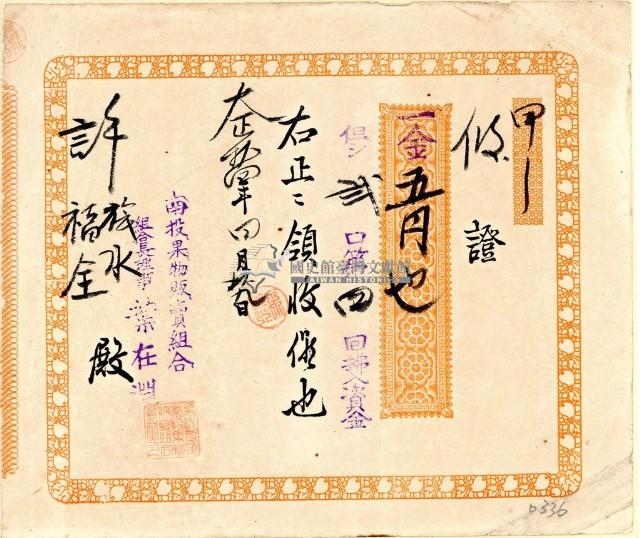 甲
假證
一金五円也
但シ弐口第四回拂込資金
右正ニ領收候也
大正
四月
南投果物販賣組合
組合長理事 葉在淵
許
福全
殿
國史館臺灣文獻館
TAIWAN HISTORICA
0336